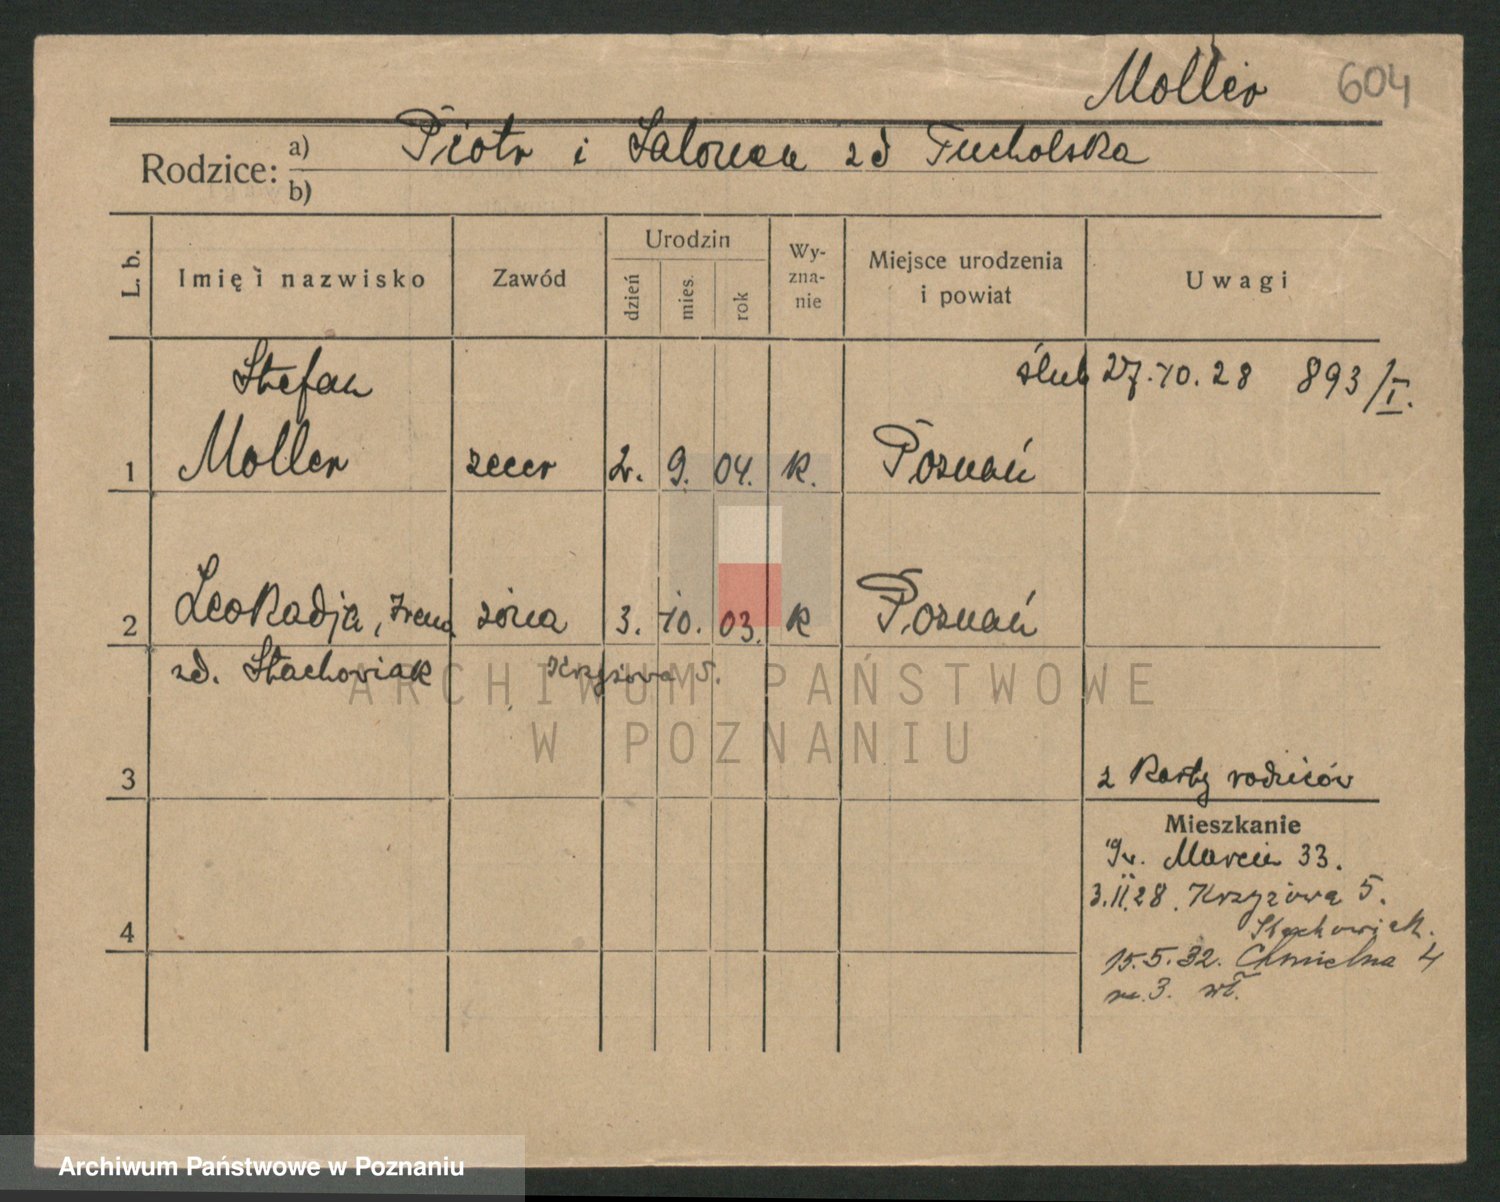 Moller 604
Rodzice: a) Piotr i Salomea zd Tucholska
b)
L. b.
Imię i nazwisko
Zawód
Urodzin
dzień
mies.
rok
Wy-
zna-
nie
Miejsce urodzenia
i powiat
Uwagi
ślub 27.10.28 893/I.
Stefan
1 Moller zecer 2. 9. 04. k. Poznań
2 Leokadja, Irena żona 3. 10. 03. k Poznań
zd. Stachowiak Krzyżowa 5.
ARCHIWUM PAŃSTWOWE
W POZNANIU
3
2 Karty rodziców
Mieszkanie
Św. Marcin 33.
3.II.28. Krzyżowa 5.
4
Stachowiak.
15.5.32. Chmielna 4
m. 3. wł.
Archiwum Państwowe w Poznaniu